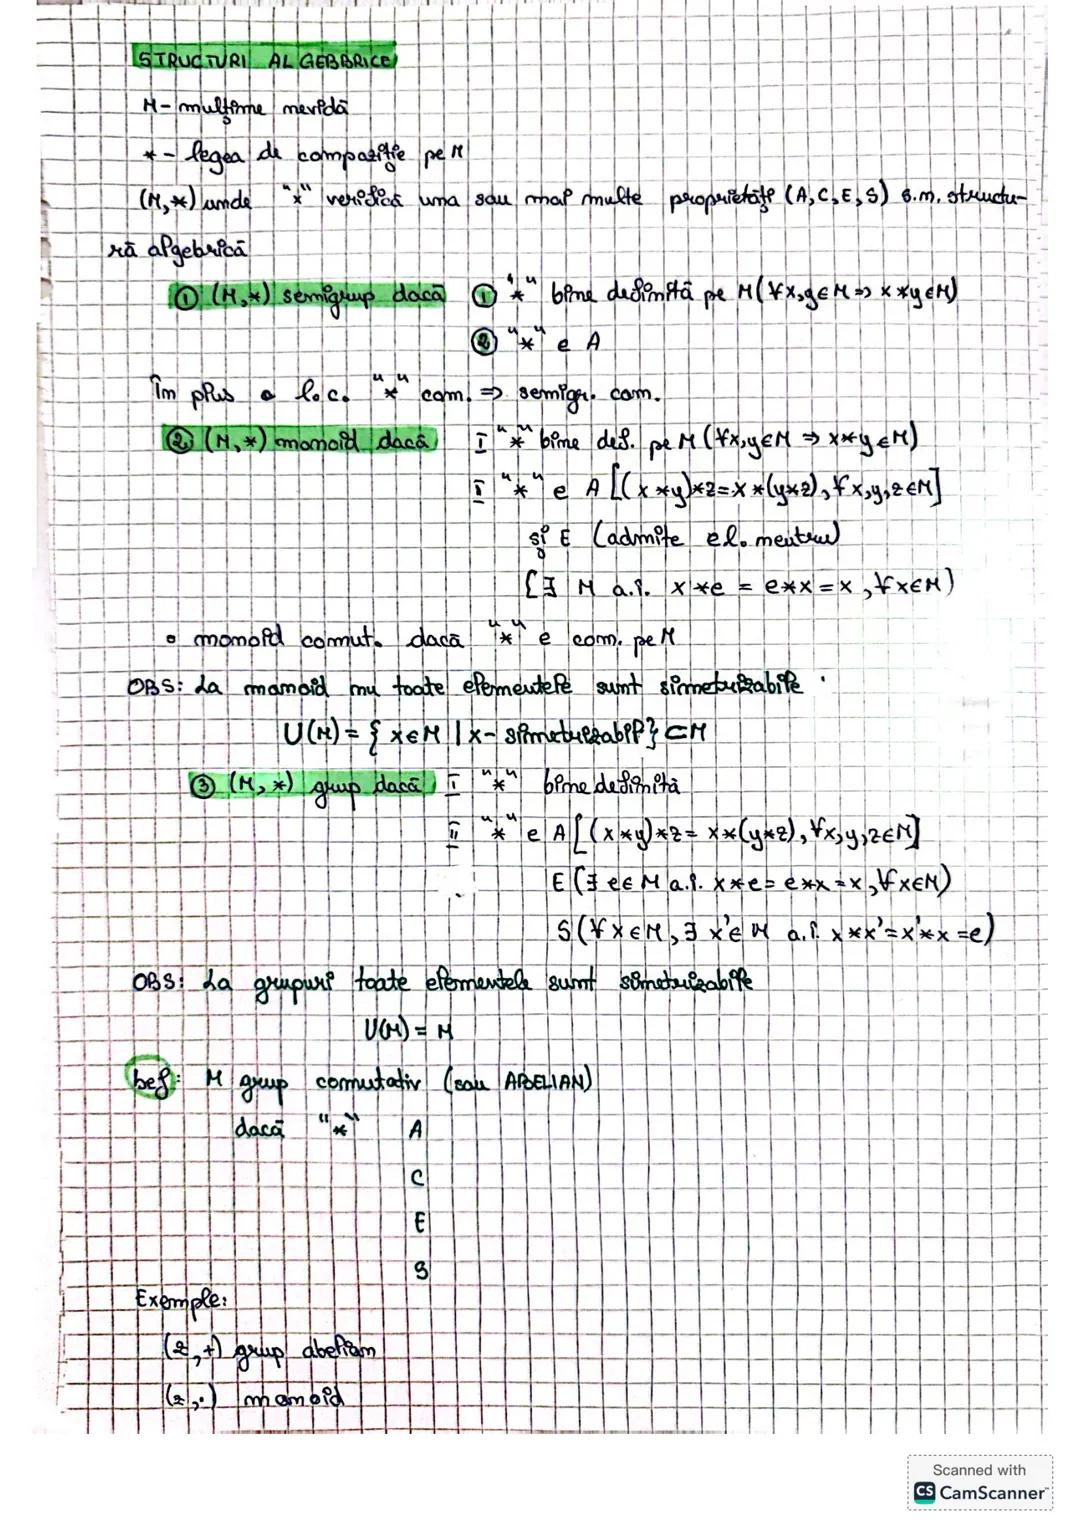 STRUCTURI ALGEBBRICE
M - mulțime nevidă
* - legea de compoziție pe M
(M,*) unde "*" verifică una sau mai multe proprietăți (A,C,E,S) s.m. structu-
ră algebrică
① (M,*) semigrup dacă ① "*" bine definită pe M (∀x,y∈M => x*y∈M)
② "*" e A
În plus o l.c. "*" com. => semigr. com.
② (M,*) monoid dacă I "*" bine def. pe M (∀x,y∈M => x*y∈M)
II "*" e A [(x*y)*z=x*(y*z), ∀x,y,z∈M]
și E (admite el. neutru)
(∃ M a.î. x*e = e*x = x, ∀x∈M)
• monoid comut. dacă "*" e com. pe M
OBS: La monoid nu toate elementele sunt simetrizabile.
U(M) = { x∈M | x - simetrizabil} ⊂M
③ (M,*) grup dacă I "*" bine definită
II "*" e A [(x*y)*z= x*(y*z), ∀x,y,z∈M]
E (∃ e∈M a.î. x*e= e*x=x, ∀x∈M)
S (∀x∈M, ∃ x'∈M a.î. x*x'=x'*x=e)
OBS: La grupuri toate elementele sunt simetrizabile
U(M) = M
Def: M grup comutativ (sau ABELIAN)
dacă "*" A
C
E
S
Exemple:
(Z,+) grup abelian
(Z,·) monoid
Scanned with
CS CamScanner